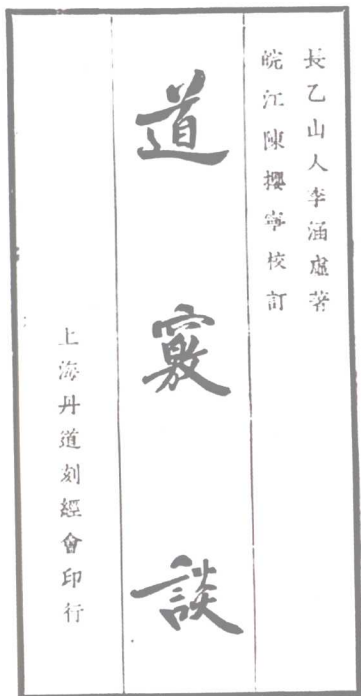 長乙山人李涵虛著
皖江陳攖寧校訂
道竅談
上海丹道刻經會印行